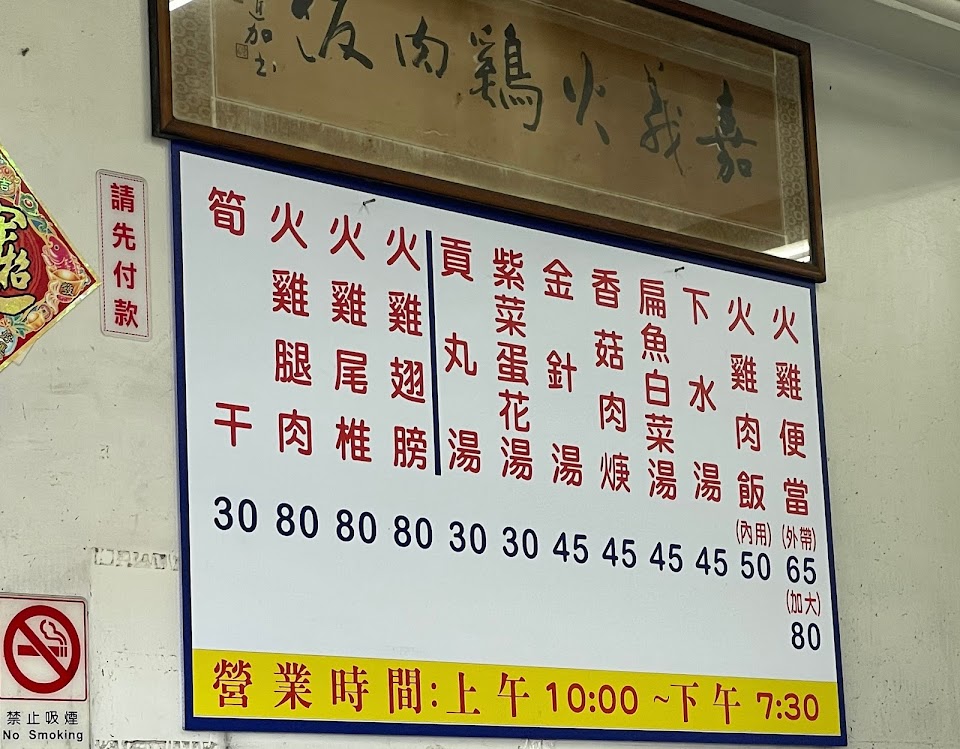 嘉義火鷄肉飯
火雞便當
(外帶)
65
(加大)
80
火雞肉飯
(內用)
50
下水湯
45
扁魚白菜湯
45
香菇肉焿
45
金針湯
45
紫菜蛋花湯
30
貢丸湯
30
火雞翅膀
80
火雞尾椎
80
火雞腿肉
80
筍干
30
營業時間:上午10:00~下午7:30
請先付款
禁止吸煙
No Smoking